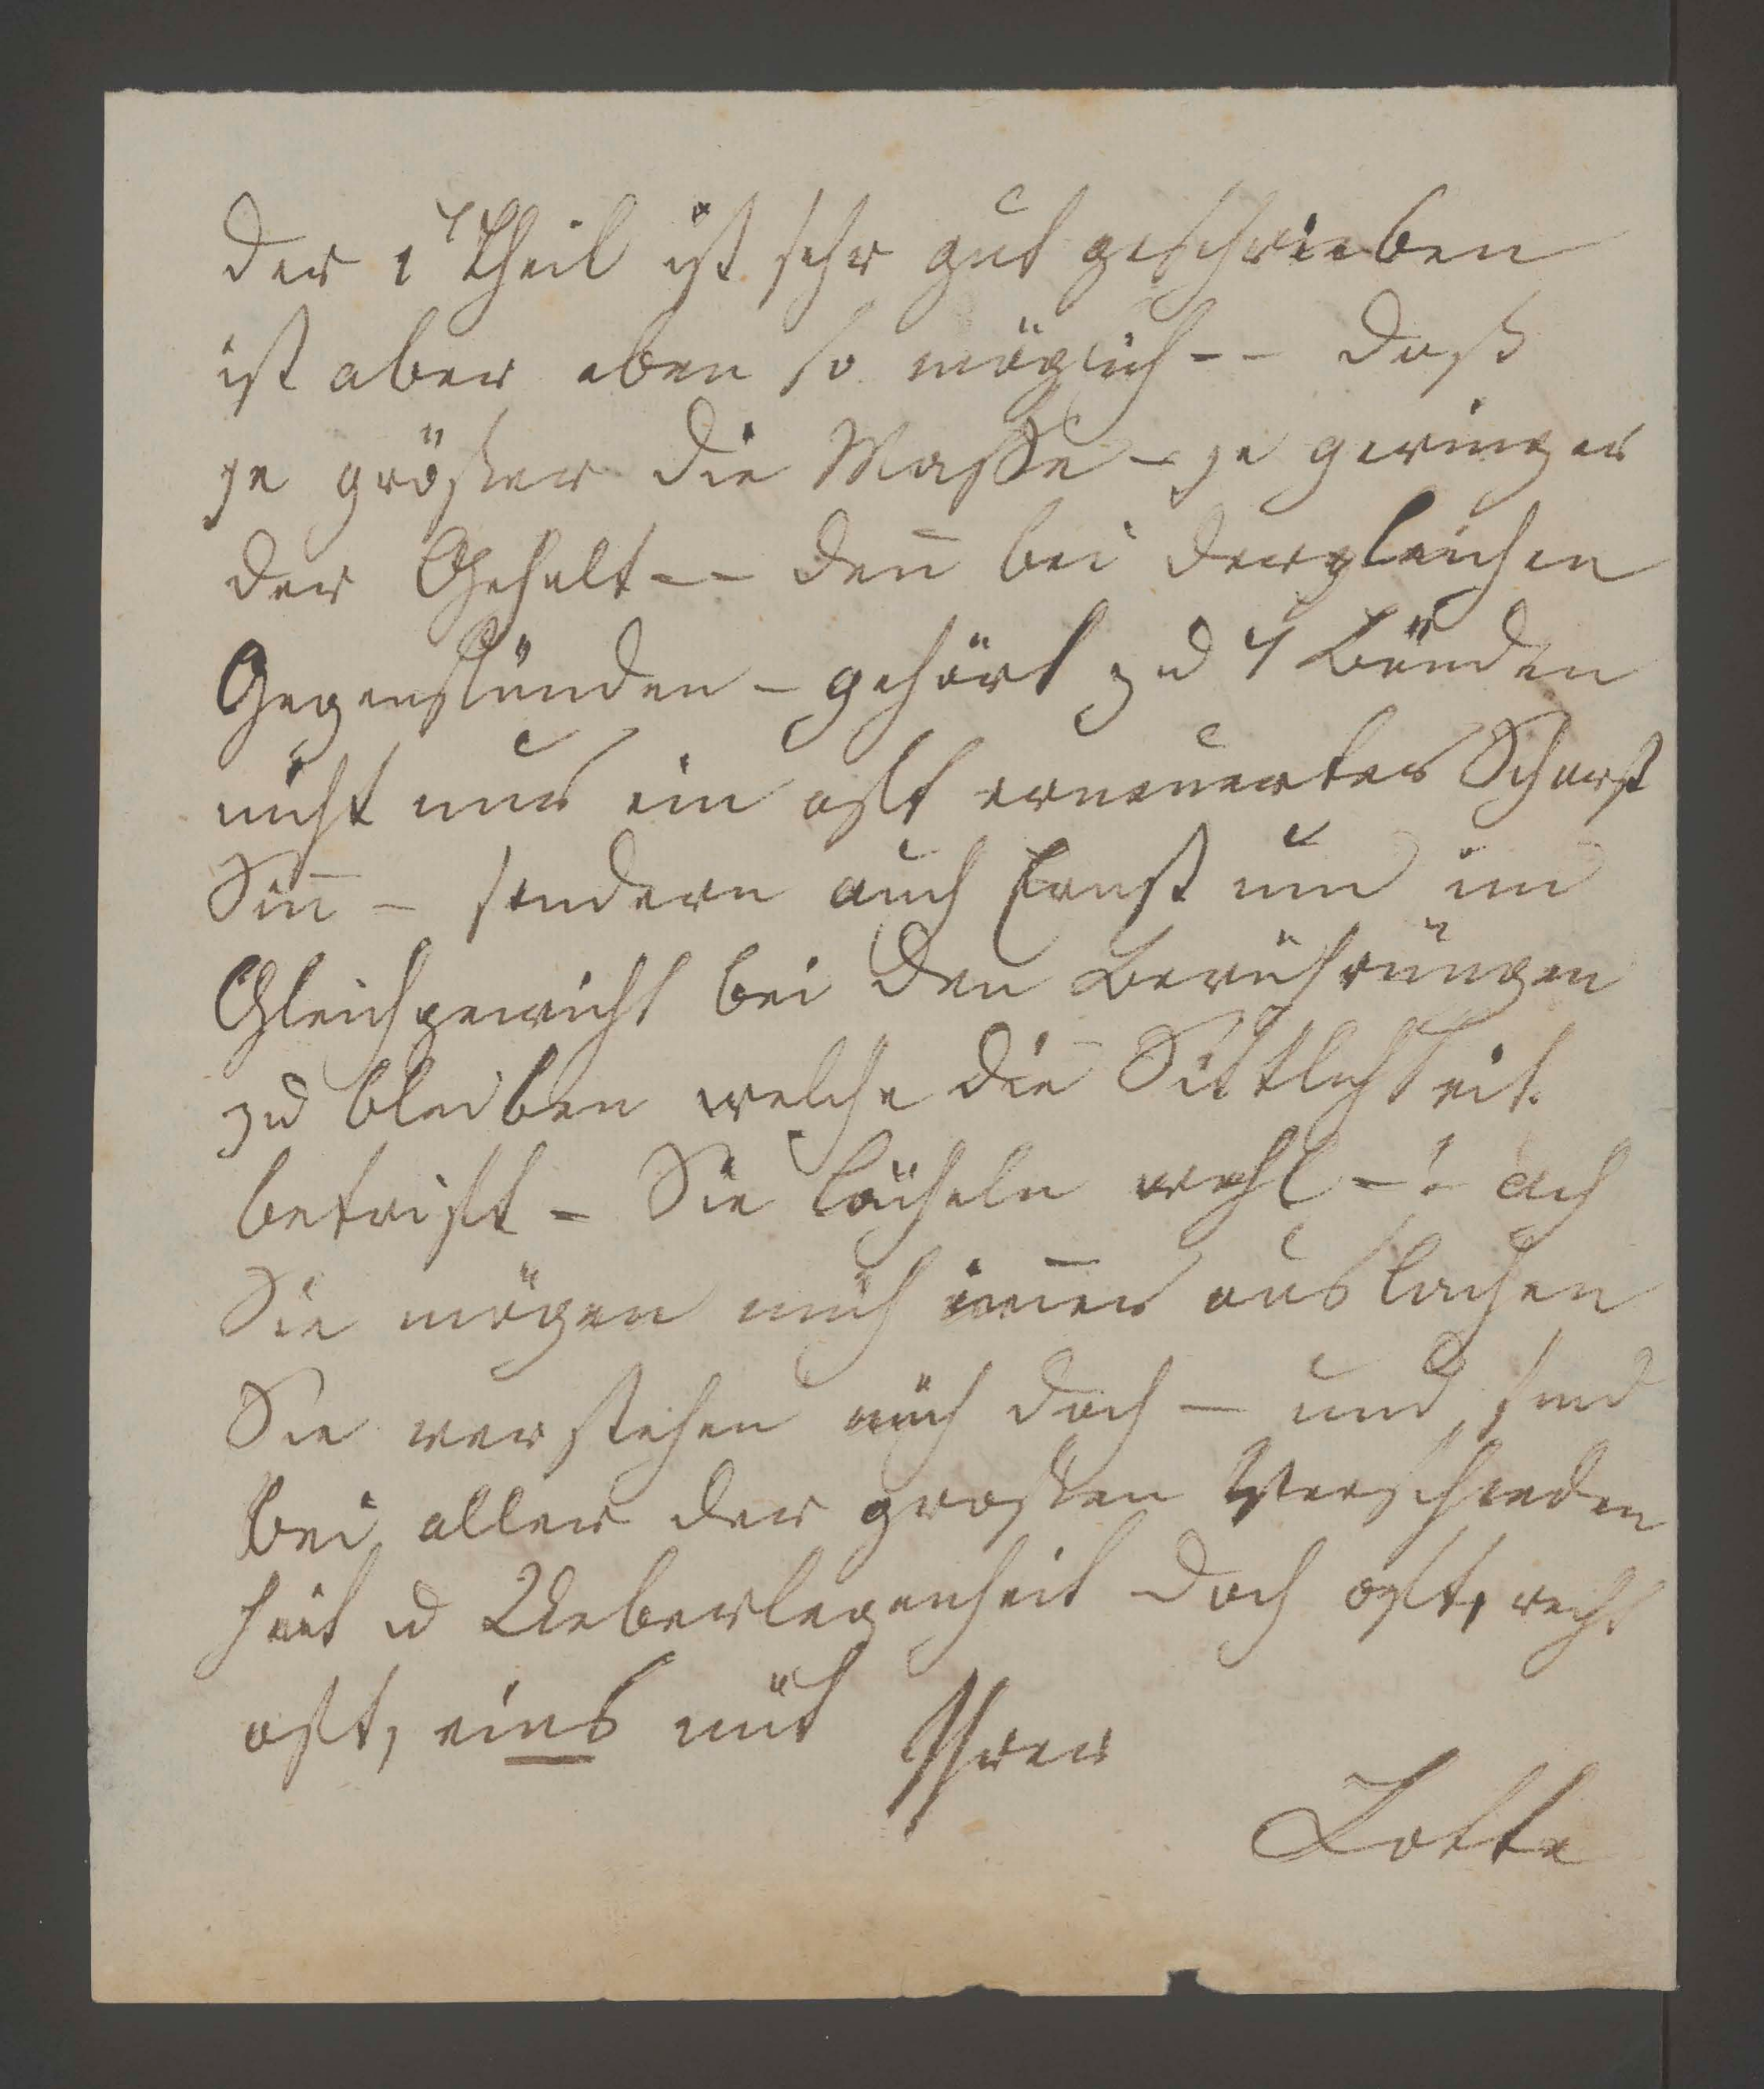 der 1r Theil ist sehr gut geschrieben
ist aber eben so möglich -- daß
je größer die Masse - je geringer
der Gehalt -- deñ bei dergleichen
Gegenständen - gehört zu 4 Bänden
nicht nur ein oft erneuerter Scharf
Siñ - sondern auch Ernst um im
Gleichgewicht bei den Berührungen
zu bleiben welche die Sittlichkeit
betrift - Sie lächeln wohl -! ach
Sie mögen mich im̃er auslachen
Sie verstehen mich doch - und sind
bei aller der großen Verschieden
heit u Ueberlegenheit doch oft, recht
oft, eins mit Ihrer
Lotte